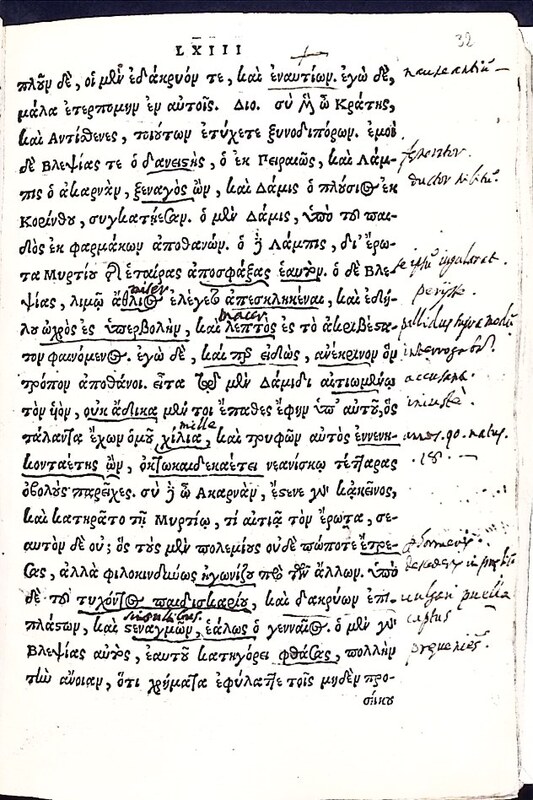 LXIII
32
πλοῦν δὲ, οἱ μὲν ἐδάκρυόν τε, καὶ ἐναυτίων. ἐγὼ δὲ,
μάλα ἐτερπόμην ἐν αὐτοῖς. Διο. σὺ δὲ ὦ Κράτης,
καὶ Αντίσθενες, ποίων ἐτύχετε ξυνοδιπόρων. ἐμοὶ
δὲ Βλεψίας τε ὁ δανειστὴς, ὁ ἐκ Πειραιῶς, καὶ Λάμ-
πις ὁ ἀκαρνὰν, ξεναγὸς ὢν, καὶ Δάμις ὁ πλούσιος ἐκ
Κορίνθου, συγκατῄεσαν. ὁ μὲν Δάμις, ὑπὸ τοῦ παι-
δὸς ἐκ φαρμάκων ἀποθανών. ὁ δὲ Λάμπις, δι' ἔρω-
τα Μυρτίου τῆς ἑταίρας ἀποσφάξας ἑαυτόν. ὁ δὲ Βλε-
ψίας, λιμῷ ἄθλιος ἐλέγετο ἀπεσκληκέναι, καὶ ἐδή-
λου ὠχρὸς ἐς ὑπερβολὴν, καὶ λεπτὸς ἐς τὸ ἀκριβέστα-
τον φαινόμενος. ἐγὼ δὲ, καί περ εἰδὼς, ἀνέκρινον ὃν
τρόπον ἀποθάνοι. εἶτα τῷ μὲν Δάμιδι αἰτιωμένῳ
τὸν ὑὸν, οὐκ ἄδικα μέν τοι ἔπαθες ἔφην ὑπ' αὐτοῦ, ὃς
τάλαντα ἔχων ὁμοῦ χίλια, καὶ τρυφῶν αὐτὸς ἐννενη-
κονταέτης ὢν, ὀκτωκαιδεκαέτει νεανίσκῳ τέτταρας
ὀβολοὺς παρεῖχες. σὺ δὲ ὦ Ακαρνὰν, ἔστενε γὰρ κἀκεῖνος,
καὶ κατηρᾶτο τῇ Μυρτίῳ, τί αἰτιᾷ τὸν ἔρωτα, σε-
αυτὸν δὲ οὔ; ὃς τοὺς μὲν πολεμίους οὐδὲ πώποτε ἔτρε-
σας, ἀλλὰ φιλοκινδύνως ἠγωνίζου πρὸ τῶν ἄλλων. ὑπὸ
δὲ τοῦ τυχόντος παιδισκαρίου, καὶ δακρύων ἐπι-
πλάστων, καὶ στεναγμῶν, ἑάλως ὁ γενναῖος. ὁ μὲν γὰρ
Βλεψίας αὐτὸς, ἑαυτοῦ κατηγόρει φθάσας, πολλὴν
τὴν ἄνοιαν, ὅτι χρήματα ἐφύλαττε τοῖς μηδὲν προ-
σήκου
miser
macer
mille
ductor
perijsse.
accusant.
iniuste.
annos. 90. natus.
18.
puella
captus